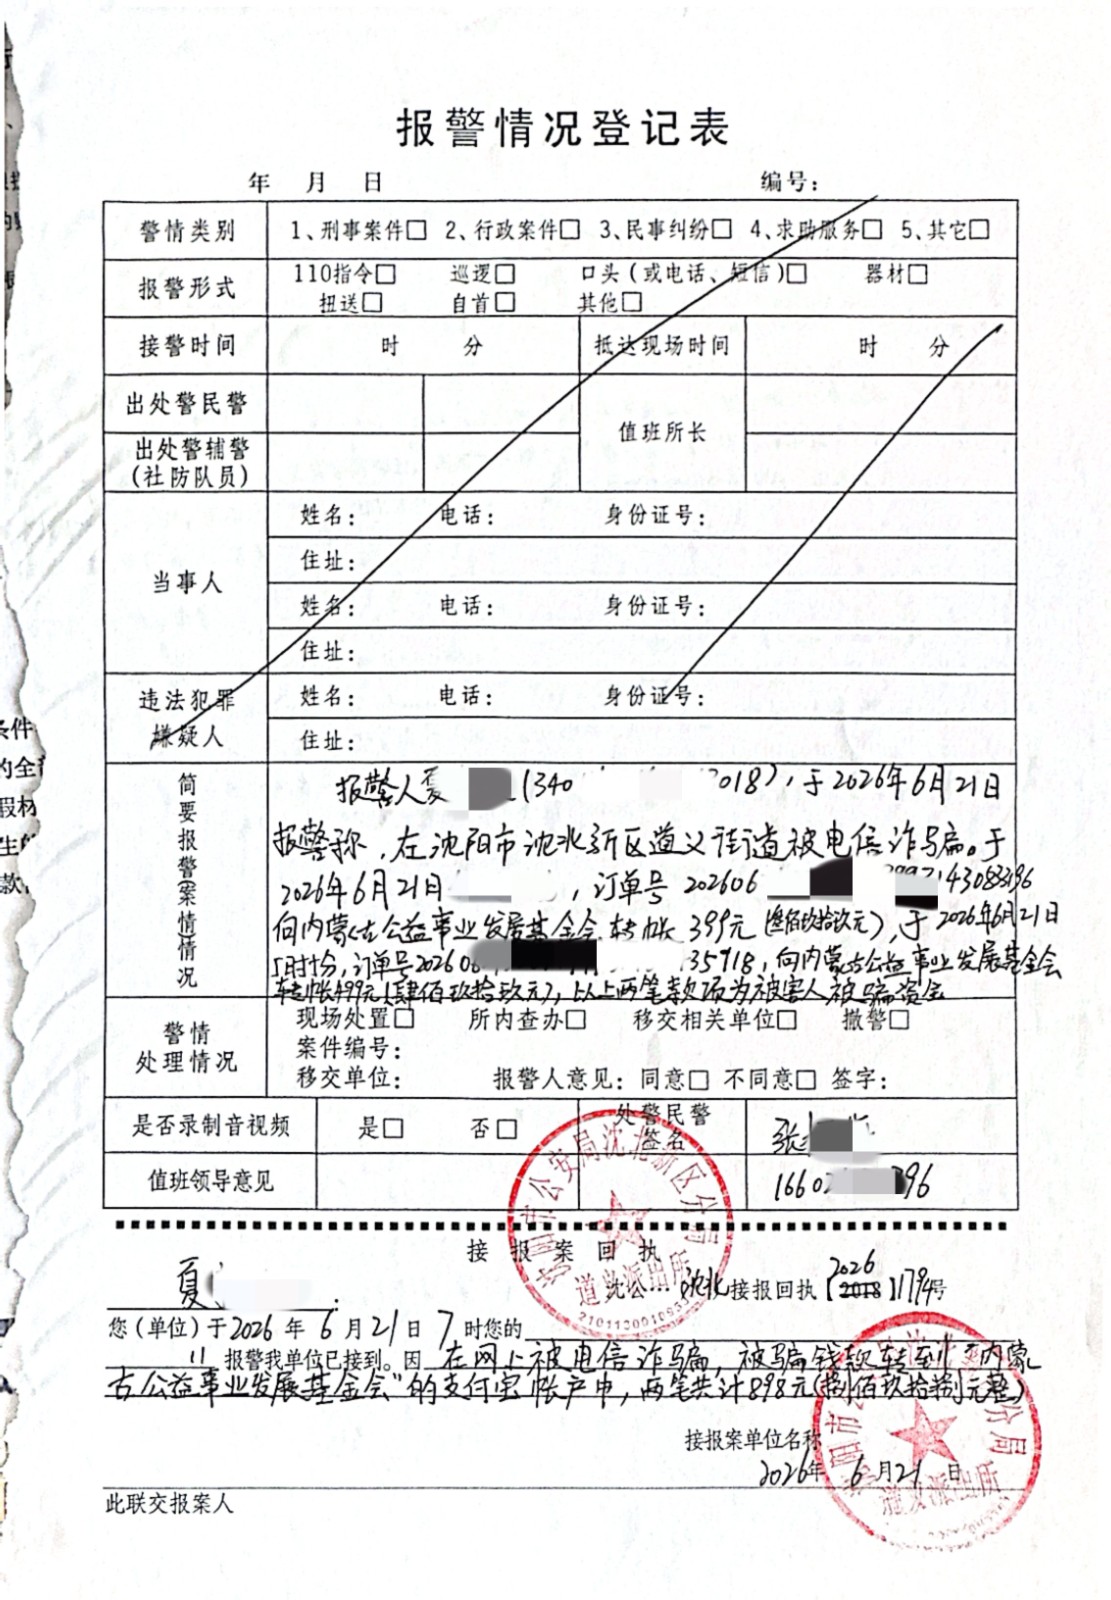 报警情况登记表
年 月 日 编号：
警情类别 1、刑事案件□ 2、行政案件□ 3、民事纠纷□ 4、求助服务□ 5、其它□
报警形式 110指令□ 巡逻□ 口头（或电话、短信）□ 器材□
扭送□ 自首□ 其他□
接警时间 时 分 抵达现场时间 时 分
出处警民警 值班所长
出处警辅警
(社防队员)
当事人 姓名： 电话： 身份证号：
住址：
姓名： 电话： 身份证号：
住址：
违法犯罪 姓名： 电话： 身份证号：
嫌疑人 住址：
简要报警(案)情情况
报警人夏 (340 2018)，于2026年6月21日
报警称，在沈阳市沈北新区道义街道被电信诈骗。于
2026年6月21日 ，订单号 202606 43083196
向内蒙古公益事业发展基金会转帐 399元 (叁佰玖拾玖元)，于2026年6月21日
订单号2026 35918，向内蒙古公益事业发展基金会
转帐499元(肆佰玖拾玖元)，以上两笔款项为被害人被骗资金
警情
处理情况
现场处置□ 所内查办□ 移交相关单位□ 撤警□
案件编号：
移交单位： 报警人意见：同意□ 不同意□ 签字：
是否录制音视频 是□ 否□ 处警民警
签名 张
值班领导意见 1660 96
接报案回执
沈公 沈北接报回执【2018 2026】1794号
夏 ：
您（单位）于2026年6月21日7时您的
11 报警我单位已接到。因 在网上被电信诈骗，被骗钱款转到"内蒙
古公益事业发展基金会"的支付宝帐户中，两笔共计898元(捌佰玖拾捌元整)
接报案单位名称
2026年6月21日
此联交报案人
沈阳市公安局沈北新区分局
道义派出所
分局
道义派出所